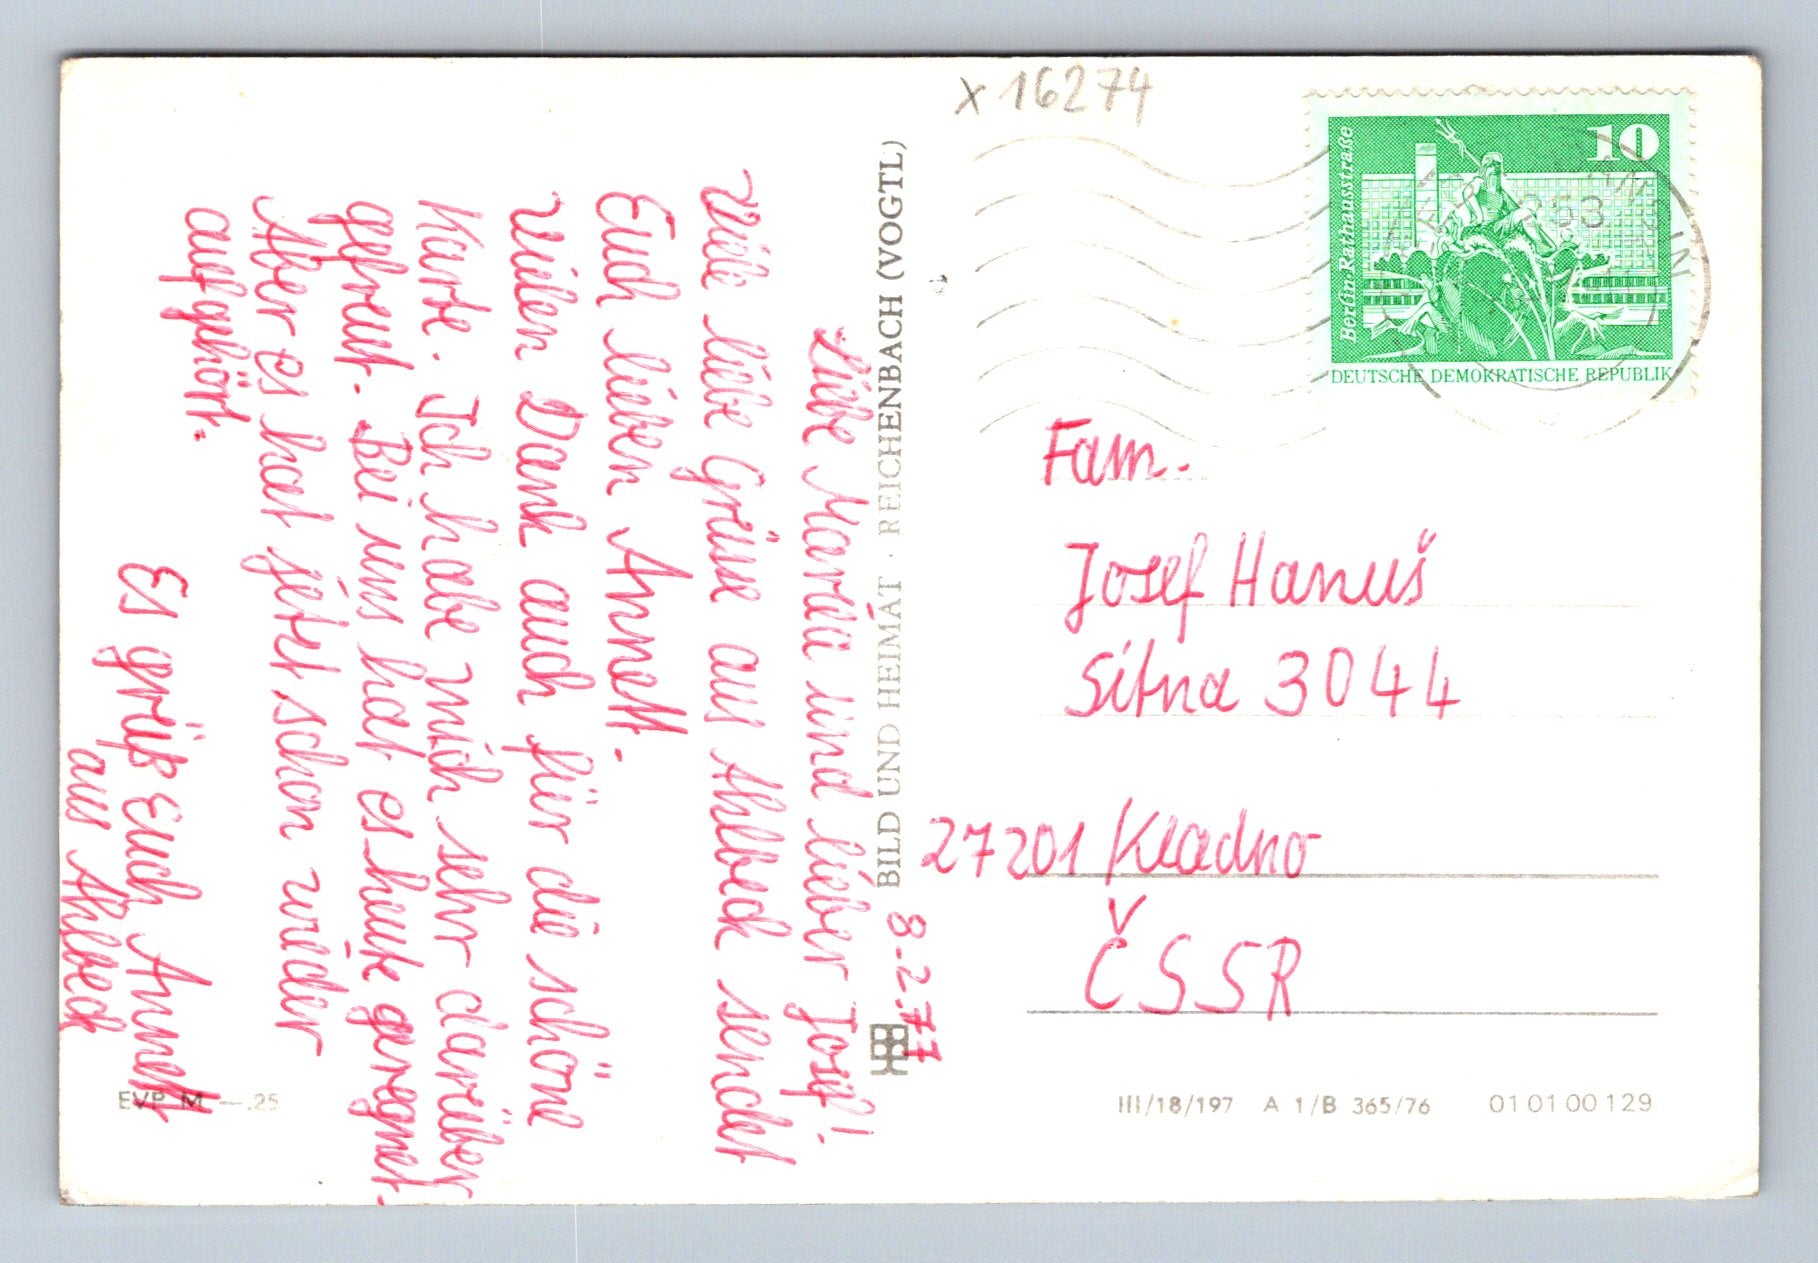 x 16274
Berlin, Rathausstraße
10
DEUTSCHE DEMOKRATISCHE REPUBLIK
8.2.77
Liebe Marda und lieber Josef!
Viele liebe Grüsse aus Ahlbeck sendet
Euch lieben Annett.
Vielen Dank auch für die schöne
Karte. Ich habe mich sehr darüber
gefreut. Bei uns hat es heute geregnet.
Aber es hat jetzt schon wieder
aufgehört.
Es grüßt Euch Annett
aus Ahlbeck
BILD UND HEIMAT · REICHENBACH (VOGTL)
Fam.
Josef Hanuš
Sitna 3044
27201 / Kladno
ČSSR
EVP M —.25
III/18/197 A 1/B 365/76 01 01 00 129